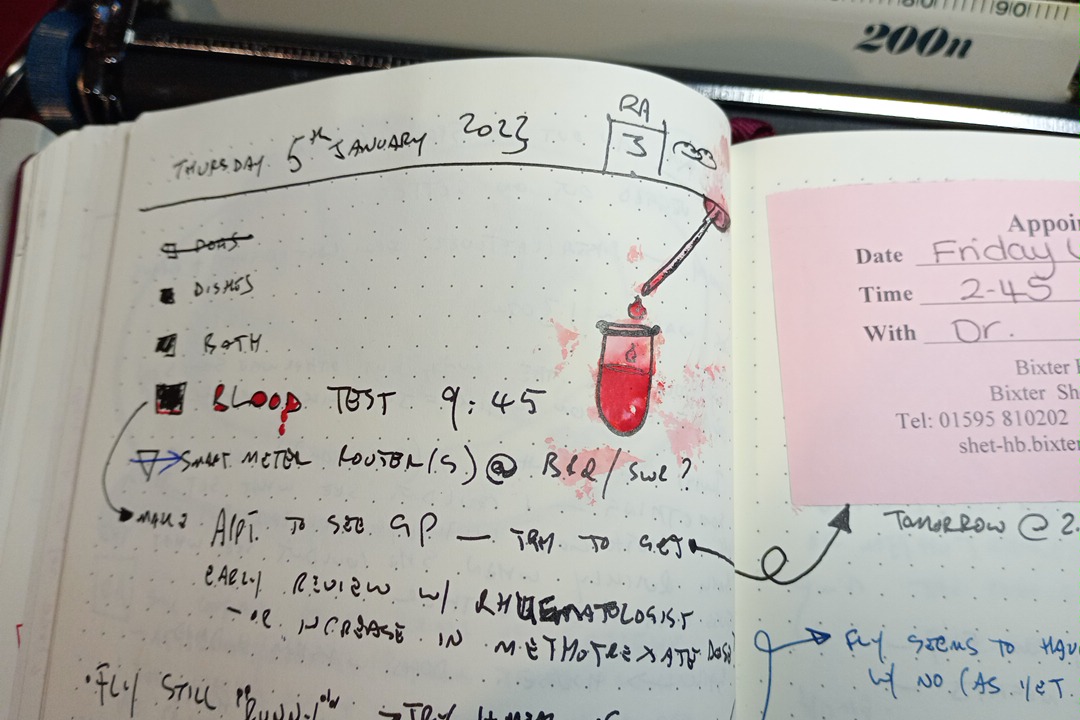 90
200n
RA
THURSDAY 5th JANUARY 2023
3
DISHES
BATH
BLOOD TEST 9:45
SMART METER ROUTER(S) @ BRQ/SWR?
MAKE
APPT. TO SEE GP — TRY TO GET
EARLY REVIEW W/ RHUEMATOLOGIST
- OR INCREASE IN METHOTREXATE DOSE
• FLY STILL "RUNNY"
→ TRY
Appoi
Date Friday
Time 2-45
With Dr.
Bixter
Bixter Sh
Tel: 01595 810202
shet-hb.bixter
TOMORROW @ 2.
FLY SEEMS TO HAV
W/ NO (AS YET